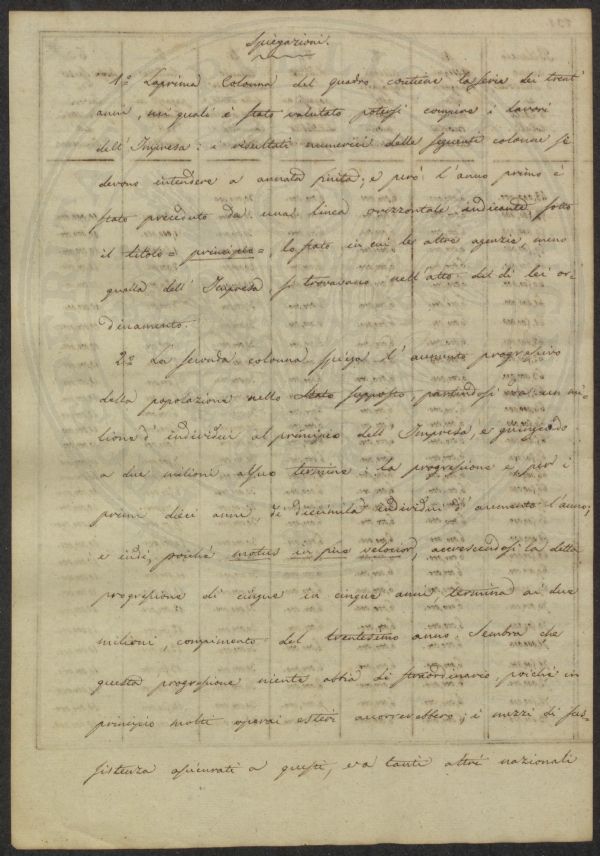 Spiegazioni.
1.º La prima Colonna del quadro contiene la serie dei trent'
anni, nei quali è stato valutato potersi compiere i lavori
dell'Impresa: i resultati numerici delle seguenti colonne si
devono intendere a annata finita, e però l'anno primo è
stato preceduto da una linea orizzontale indicante, sotto
il titolo = principio =, lo stato in cui le altre agenzie, meno
quella dell'Impresa, si trovavano nell'atto del di lei or-
dinamento.
2.º La seconda colonna spiega l'aumento progressivo
della popolazione nello Stato supposto, partendosi da un mi-
lione d'individui al principio dell'Impresa, e giungendo
a due milioni al suo termine: la progressione è, per i
primi dieci anni, di diecimila individui d'aumento l'anno;
e indi, poichè motus in fine velocior, accrescendosi la detta
progressione di cinque in cinque anni termina ai due
milioni, compimento del trentesimo anno. Sembra che
questa progressione niente abbia di straordinario, poichè in
principio molti operai esteri accorrerebbero; i mezzi di sus-
sistenza assicurati a questi, e a tanti altri nazionali